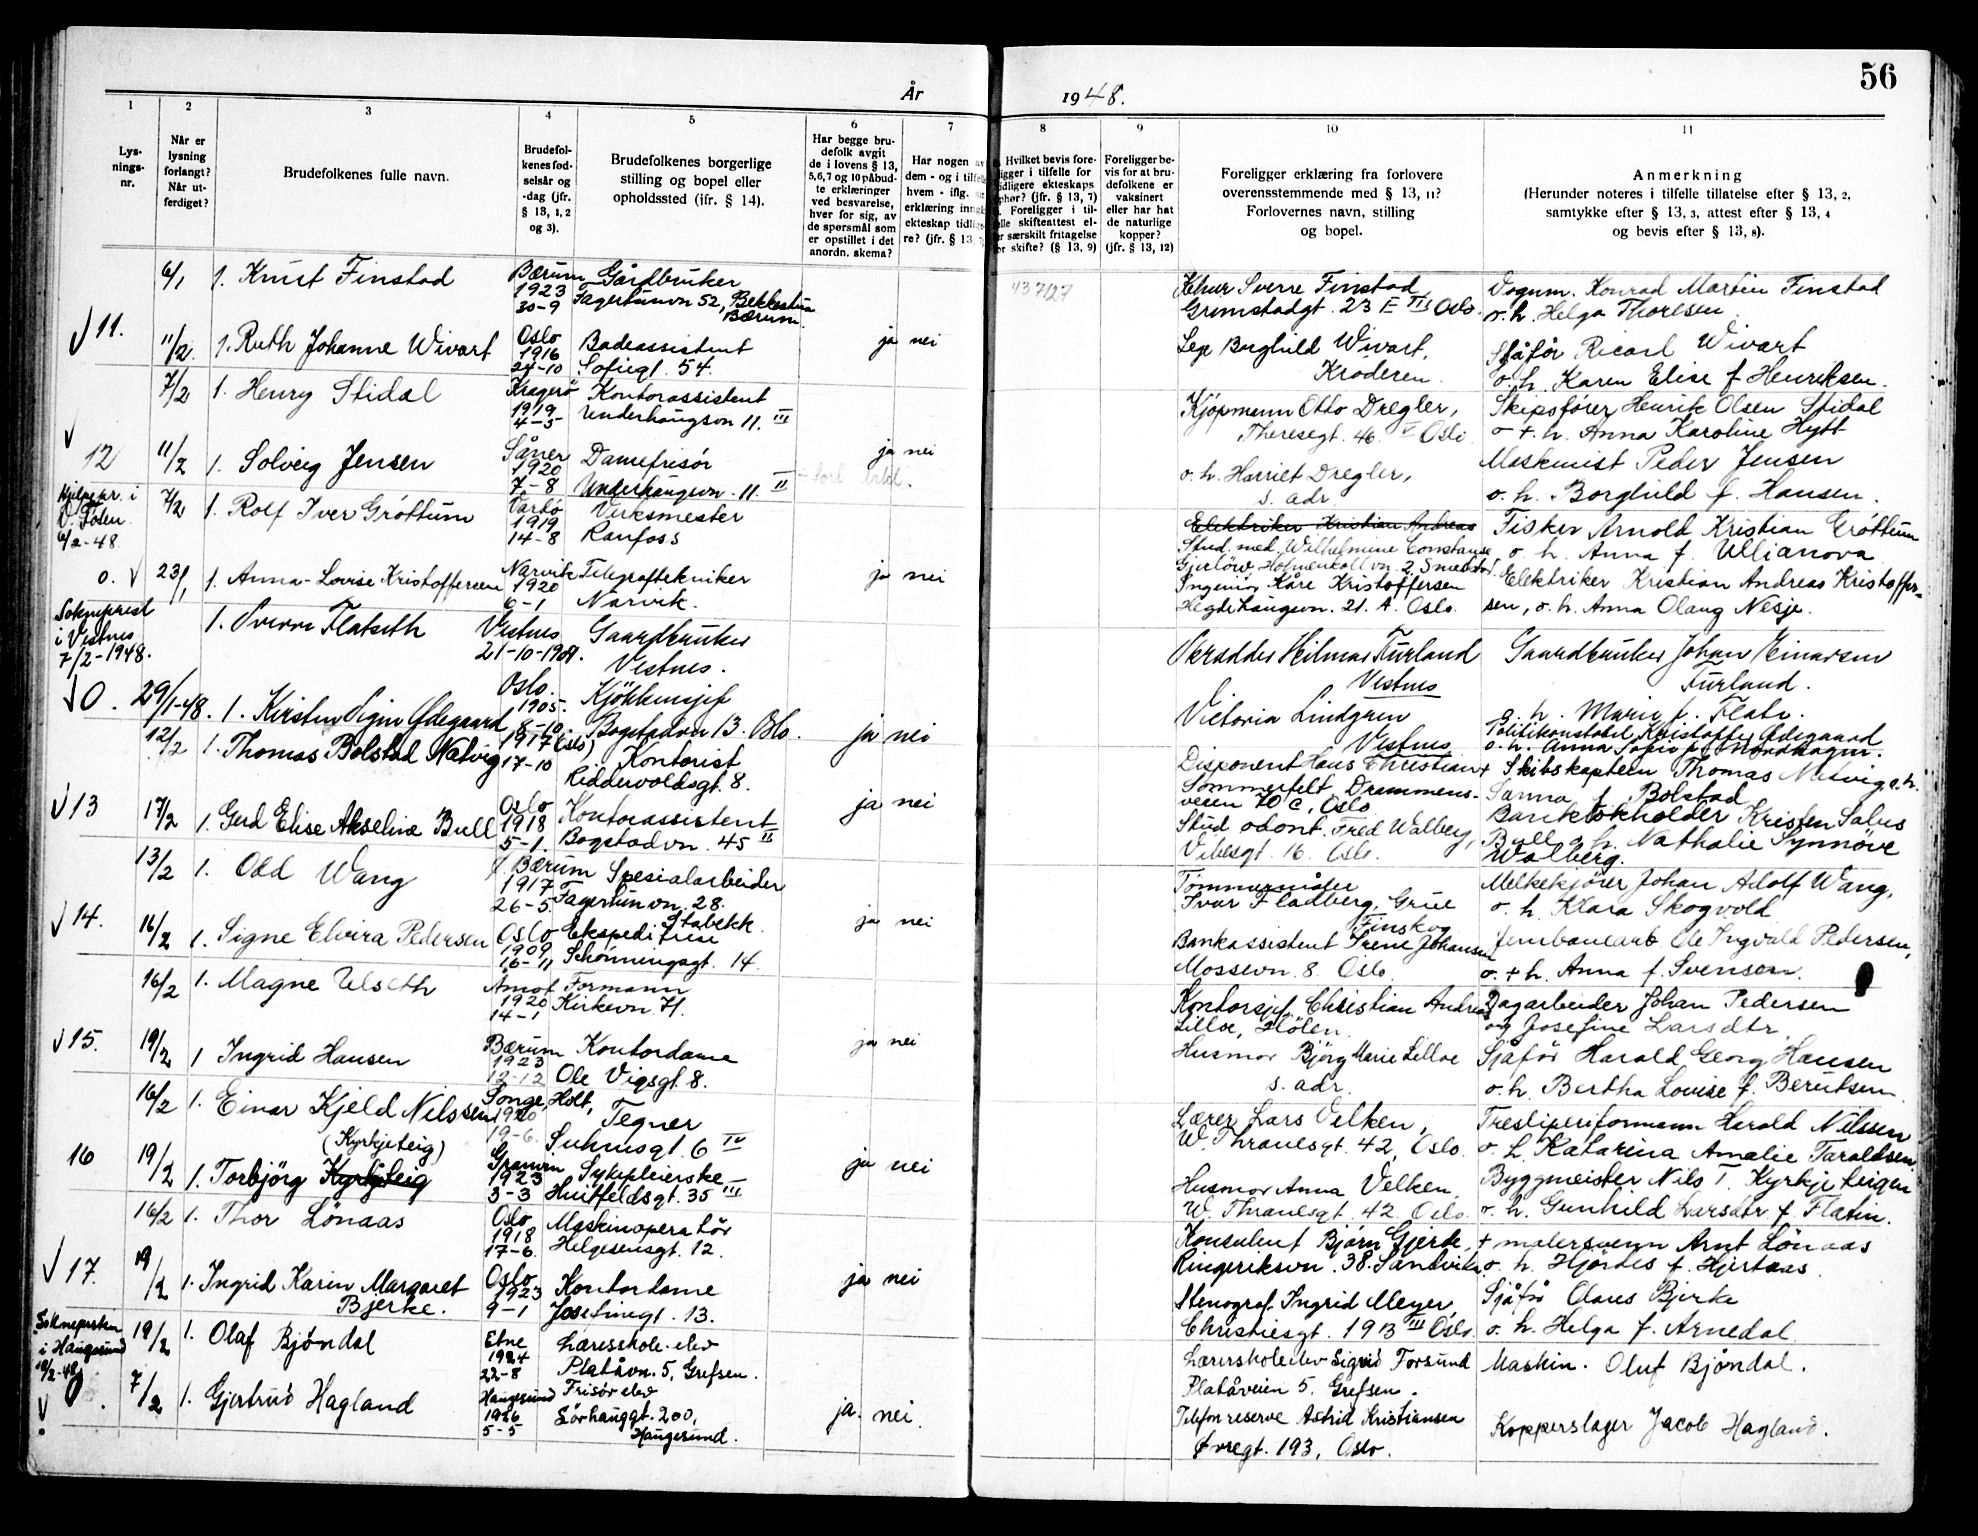 56
År 1948.
1 2 3 4 5 6 7 8 9 10 11
Lys-
nings-
nr.
Når er
lysning
forlangt?
Når ut-
ferdiget?
Brudefolkenes fulle navn.
Brudefol-
kenes fød-
selsår og
-dag (jfr.
§ 13, 1, 2
og 3).
Brudefolkenes borgerlige
stilling og bopel eller
opholdssted (ifr. § 14).
Har begge bru-
defolk avgit
de i lovens § 13,
5,6,7 og 10 påbud-
te erklæringer
ved besvarelse,
hver for sig, av
de spørsmål som
er opstillet i det
anordn. skema?
Har nogen av
dem - og i tilfelle
hvem - iflg.
erklæring inng
ekteskap tidlig
re? (jfr. § 13,
Hvilket bevis fore-
ligger i tilfelle for
tidligere ekteskaps
ophør? (jfr. § 13, 7)
Foreligger i til-
felle skifteattest el-
ler særskilt fritagelse
for skifte? (§ 13, 9)
Foreligger be-
vis for at bru-
defolkene er
vaksinert
eller har hat
de naturlige
kopper?
(jfr. § 13, 12)
Foreligger erklæring fra forlovere
overensstemmende med § 13, 11?
Forlovernes navn, stilling
og bopel.
Anmerkning
(Herunder noteres i tilfelle tillatelse efter § 13, 2,
samtykke efter § 13, 3, attest efter § 13, 4
og bevis efter § 13, 8).
6/1 1. Knut Finstad Bærum 1923 30-9 Gårdbruker Fagertunvn 52, Bekkestua Bærum Sverre Finstad Grimstadgt. 23 Oslo. Vognm. Konrad Martin Finstad o.h. Helga Thoresen
11. 11/2. 1. Ruth Johanne Wivart Oslo 1916 24-10 Badeassistent Sofiegt. 54. ja nei Borghild Wivart, Krøderen. Sjåfør Ricard Wivart o.h. Karen Elise f Henriksen.
7/2 1. Henry Stidal Kragerø 1919 4-5 Kontorassistent Underhaugsvn 11. III Kjøpmann Otto Dregler, Theresegt. 46. V Oslo Skipsfører Henrik Olsen Stidal o + h. Anna Karoline Hytt
12 11/2 1. Solveig Jensen Såner 1920 7-8 Damefrisør Underhaugsvn. 11. II ja nei o.h. Harriet Dregler, s. adr Maskinist Peder Jensen o.h. Borghild f. Hansen.
Hjelpepr. i
V. Toten
6/2-48.
7/2 1. Rolf Iver Gröttum Vardø 1919 14-8 Verksmester Raufoss Elektriker Kristian Andreas Stud. med. Wilhelmine Constance Gjerløw, Holmenkollvn. 2, Smestad. Fisker Arnold Kristian Gröttum o. h. Anna f. Ullianova
o. 23/1 1. Anna-Lovise Kristoffersen Narvik 1920 6-1 Telegraftekniker Narvik. ja nei Ingeniør Kåre Kristoffersen Hegdehaugsvn. 21. A. Oslo. Elektriker Kristian Andreas Kristoffer- sen, o.h. Anna Olaug Nesje.
Sokneprest
i Vestnes
7/2-1948.
1. Sverre Flatseth Vestnes 21-10-1909. Gaardbruker Vestnes. Skrædder Hilmar Furland Vestnes Gaardbruker Johan Einarsen Furland. o. h. Marie f. Flate.
0. 29/1-48. 1. Kirsten Signe Ødegaard Oslo. 1905. 8-10. Kjøkkensjef Bogstadvn 13. Oslo. ja nei Victoria Lindgren Vestnes Politikonstabel Kristoffer Ødegaard o.h. Anna Sofie f. Nordhagen.
12/2 1. Thomas Bolstad Natvig 1917 (Oslo) 17-10 Kontorist Riddervoldsgt. 8. Disponent Hans Christian Sommerfelt, Drammens- veien 70 c, Oslo + Skibskaptein Thomas Natvig, o.h. Sanna f. Bolstad
13 17/2 1. Gerd Elise Akseline Bull Oslo 1918 5-1. Kontorassistent Bogstadvn. 45 II ja nei Stud odont. Fred Walberg, Vibesgt. 16. Oslo. Bankbokholder Kristen Salus Bull o.h. Nathalie Synnöve Walberg.
13/2 1. Odd Wang V. Bærum 1917 26-5. Spesialarbeider Fagertunvn. 28. Stabekk. Tømmermåler Ivar Fladberg, Grue Finskog Melkekjører Johan Adolf Wang, o. h. Klara Skogvold
14. 16/2 1. Signe Elvira Pedersen Oslo 1909 16-11 Ekspeditrise Schønningsgt. 14. ja nei Bankassistent Irene Johansen Mossevn. 8. Oslo. Jernbanearb Ole Ingvald Pedersen, o. + h. Anna f. Svensen.
16/2 1. Magne Ulseth Åmot 1920 14-1 Formann Kirkevn 71. Kontorsjef Christian Andreas Lilloe, Hölen. Dagarbeider Johan Pedersen og Josefine Larsdtr.
15. 19/2 1 Ingrid Hansen Bærum 1923 12-12 Kontordame Ole Vigsgt. 8. ja nei Husmor Bjørg Marie Lilloe s. adr. Sjåfør Harald Georg Hansen o.h. Bertha Lovise f. Berntsen
16/2 1. Einar Kjeld Nilssen Songe, Holt, 1920 19-6. Tegner Suhmsgt. 6 IV Lærer Lars Velken, W. Thranesgt. 42, Oslo. Tresliperiformann Harald Nilssen o. h. Katarina Amalie Taraldsen.
(Kyrkjeteig)
16 19/2 1. Torbjörg Kyrkjeteig Granvin 1923 3-3 Sykepleierske Huitfeldsgt. 35 III ja nei Husmor Anna Velken, W. Thranesgt. 42. Oslo. Byggmeister Nils T. Kyrkjeteigen o. h. Gunhild Larsdtr f. Flaten.
16/2 1. Thor Lönaas Oslo 1918 17-6. Maskinoperatör Helgesensgt. 12. Konsulent Bjørn Gjerde, Ringeriksvn. 38. Sandvika + malersvenn Arnt Lönaas o. h. Hjördis f. Hjertaas.
17. 19/2 1. Ingrid Karin Margaret Bjerke. Oslo 1923 9-1 Kontordame Josefinegt. 13. ja nei Stenograf Ingrid Meyer, Christiesgt. 19 B III Oslo. Sjåfør Olaus Bjerke o. h. Helga f. Arnedal.
Soknepresten
i Haugesund
10/2-48
19/2 1. Olaf Bjöndal Etne 1924 22-8 Læreskole-elev Platåvn. 5, Grefsen. Lærerskoleelev Sigrid Torsund Platåveien 5, Grefsen. Maskin. Oluf Bjöndal.
7/2 1. Gjertrud Hagland Haugesund 1926 5-5 Frisør elev Sörhauggt. 200, Haugesund. ja. nei. Telefonreserve Astrid Kristiansen Øvregt. 193, Oslo. Kopperslager Jacob Hagland.